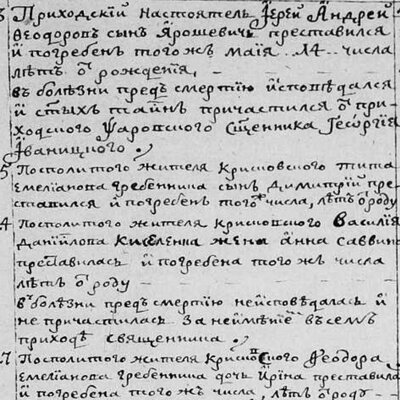 Приходскій настоятель Іерей Андрей
Ѳеодоровъ сынъ Ярошевичъ преставился
и погребенъ тогожъ маія 14 числа
лѣтъ ѿ рожденія,
въ болѣзни предъ смертію исповѣдался
и стыхъ таинъ причастился ѿ при-
ходского священника Георгія
Іваницкого
5 Посполитого жителя Крисковского Тита
Емеліанова Гребенника сынъ Димитрій пре-
ставился и погребенъ того числа, лѣтъ ѿ роду
4 Посполитого жителя Крисковского Василія
Даніилова Киселенка жена Анна Саввина
преставилась и погребена тогожъ числа
лѣтъ ѿ роду
въ болѣзни предъ смертію неисповѣдалась и
не причастилась за неимѣніе въ семъ
приходѣ священника
7 Посполитого жителя Ѳеодора
Емеліанова Гребенника дочь Ирина преставила
и погребена тогожъ числа, лѣтъ ѿ роду